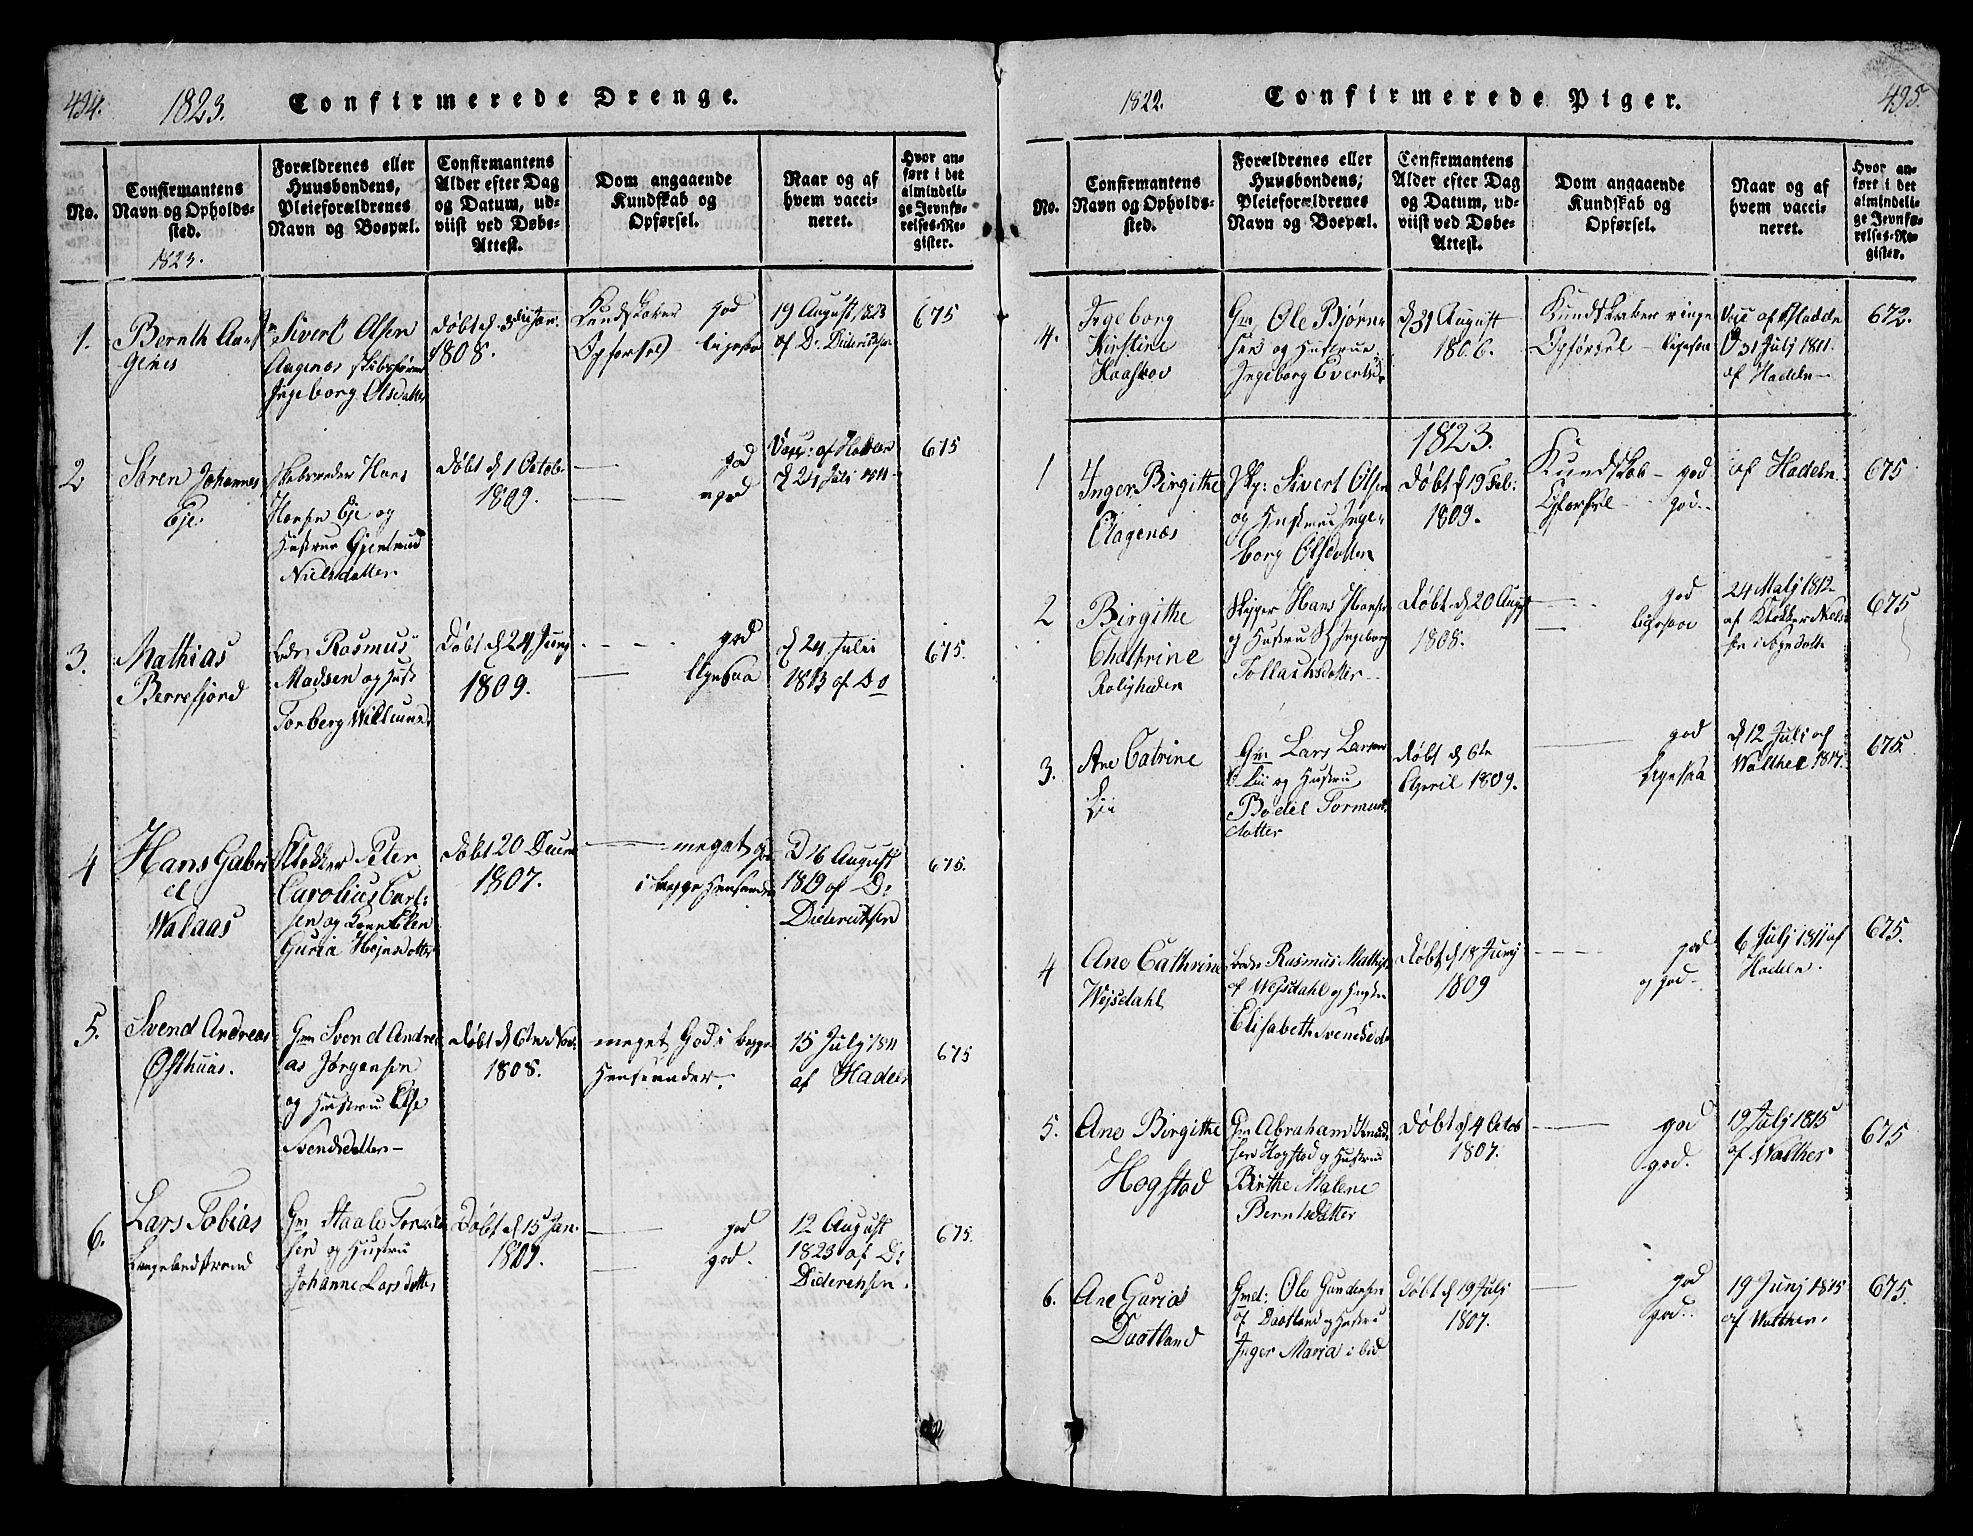 494. 1823. Confirmerede Drenge.
No.
Confirmantens
Navn og Opholds-
sted.
1823.
Forældrenes eller
Huusbondens,
Pleieforældrenes
Navn og Boepæl.
Confirmantens
Alder efter Dag
og Datum, ud-
viist ved Døbe-
Attest.
Dom angaaende
Kundskab og
Opførsel.
Naar og af
hvem vacci-
neret.
Hvor an-
ført i det
almindeli-
ge Jevnfø-
relses-Re-
gister.
1.
Bernth
Sivert Olsen
Aagenæs
Ingeborg Olsdatter
Døbt d.
1808.
Kundskaber god
Opførsel ligesaa
19 August 1823
af D: Diderichsen
675
2
Søren Johannes
Eje
Skibsreder Hans
Hansen Eje og
Hustrue Gjertrud
Nielsdatter
Døbt d 1 Octob
1809.
god
god
af Hadeln
675
3.
Mathias
Berrefjord
Rasmus
Madsen og
Torberg
Døbt d 24 Junj
1809.
god
ligesaa
d 24 Juli
1813 af Do
675.
4
Hans Gabri
el
Walaas
Klokker Peter
Carolius Carl-
sen og Kone Elen
Guria
Døbt 20 Decem
1807.
meget god
i begge Henseender
D 16 August
1819 af D:
Diderichsen
675.
5.
Svend Andreas
Østhuus.
Gm Svend Andre
as Jørgensen
og Hustru Else
Svendsdatter –
Døbt d 6te Nov:
1808.
meget God i begge
Henseender.
15 Julj 1811
af Hadeln
675
6.
Lars Tobias
Langelandstrand
Gm Staale
sen og Hustru
Johanne Larsdatter
Døbt d 15 Jan.
god
god.
12 August
1823 af D:
Diderichsen.
675.
1822. Confirmerede Piger. 495.
No.
Confirmantens
Navn og Opholds-
sted.
Forældrenes eller
Huusbondens,
Pleieforældrenes
Navn og Boepæl.
Confirmantens
Alder efter Dag
og Datum, ud-
viist ved Døbe-
Attest.
Dom angaaende
Kundskab og
Opførsel.
Naar og af
hvem vacci-
neret.
Hvor an-
ført i det
almindeli-
ge Jevnfø-
relses-Re-
gister.
4.
Ingeborg
Kirstine
Kaaskov
Gm Ole Bjørn-
sen og Hustrue
Ingeborg Evertsd
d 31 August
1806.
Kundskaber ringe
Opførsel – ligesaa
31 Julj 1811.
af Hadeln –
672.
1823.
1
Inger Birgithe
Aagenæs
Sivert Olsen
og Hustrue Inge-
borg Olsdatter
Døbt d 19 Feb:
1809.
Kundskab – god
Opførsel – god.
af Hadeln
675
2
Birgithe
Chathrine
Roligheden
Skipper Hans Hansen
og Hustru Ingeborg
Tollachsdatter
Døbt d 20 Aug
1808.
god
ligesaa
24 Maij 1812
af Klokker
675
3.
Ane Catrine
Lii
Gm Lars Larsen
Lii og Hustru
Bodil Tormun
datter
Døbt d 6te
April 1809.
god
ligesaa
d 12 Juli af
Walther 1817.
675.
4
Ane Cathrine
Wejsdahl
Rasmus
af Wejsdahl og Hustru
Elisabeth Svendsd
Døbt d 18 Junj
1809
god
og god –
6 Julj 1811 af
Hadeln.
675.
5.
Ane Birgithe
Hogstad
Gm Abraham Knud
sen Hogstad og Hustru
Birthe Malene
Berntsdatter
Døbt d 4 Octob
1807.
god
god.
19 Julj 1815
af Walther
675
6.
Ane Gurias
Daatland
Gmd: Ole Gundersen
af Daatland og Hustru
Inger Maria
Døbt d 19 Julj
1807.
god
god.
19 Junj 1815
af Walther.
675.